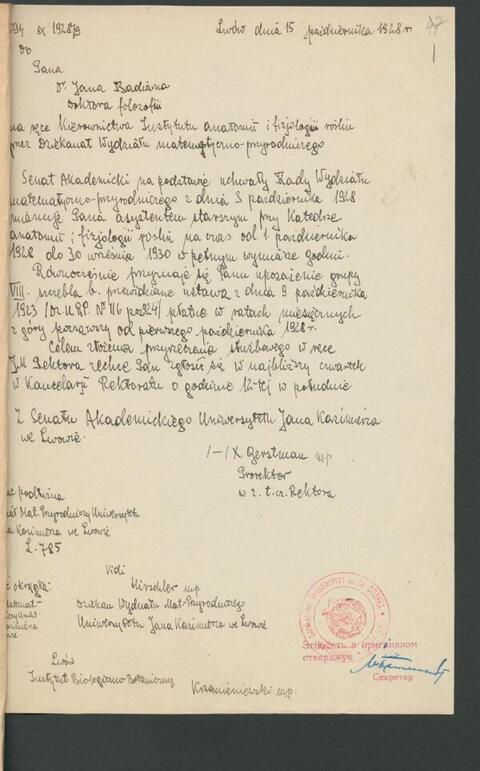 794 ex 1928/9
Lwów dnia 15 października 1928 r
Do
Pana
Dr Jana Badiana
Doktora filozofii
na ręce Kierownictwa Instytutu anatomii i fizjologii roślin
przez Dziekanat Wydziału matematyczno-przyrodniczego
Senat Akademicki na podstawie uchwały Rady Wydziału
matematyczno-przyrodniczego z dnia 3 października 1928
mianuje Pana asystentem starszym przy Katedrze
anatomii i fizjologii roślin na czas od 1 października
1928 do 30 września 1930 w pełnym wymiarze godzin.
Równocześnie przyznaje się Panu uposażenie grupy
VIII. szczebla b. przewidziane ustawą z dnia 9 października
1923 /Dz.U.RP. Nº 116 poz 924/ płatne w ratach miesięcznych
z góry począwszy od pierwszego października 1928 r.
Celem złożenia przyrzeczenia służbowego w ręce
J.M Rektora zechce Pan zgłosić się w najbliższy czwartek
w Kancelarji Rektoratu o godzinie 12-tej w południe
Z Senatu Akademickiego Uniwersytetu Jana Kazimierza
we Lwowie.
/-/ X Gerstman mp
Prorektor
w z. t. cz. Rektora
podłużna
Mat.Przyrodniczy Uniwersytetu
Kazimierza we Lwowie
L. 785
Vidi
okrągła:
Hirschler mp
Dziekan Wydziału Mat-Przyrodniczego
Uniwersytetu Jana Kazimierza we Lwowie
Lwów
Instytut Biologiczno-Botaniczny
Krzemieniewski mp.
Згідність з оригіналом
стверджує
Секретар